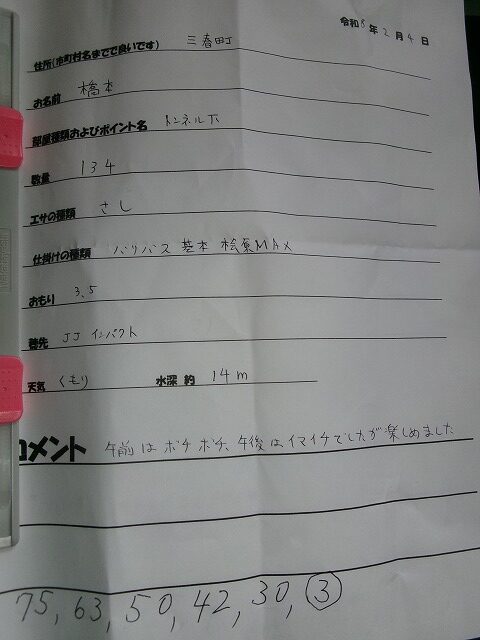 令和8年2月4日
住所(市町村名までで良いです) 三春町
お名前 橋本
部屋種類およびポイント名 トンネル下
数量 134
エサの種類 さし
仕掛けの種類 バリバス 基本 桧原MAX
おもり 3.5
穂先 JJ インパクト
天気 くもり 水深 約 14m
コメント 午前はボチボチ、午後はイマイチでしたが楽しめました
75, 63, 50, 42, 30, ③